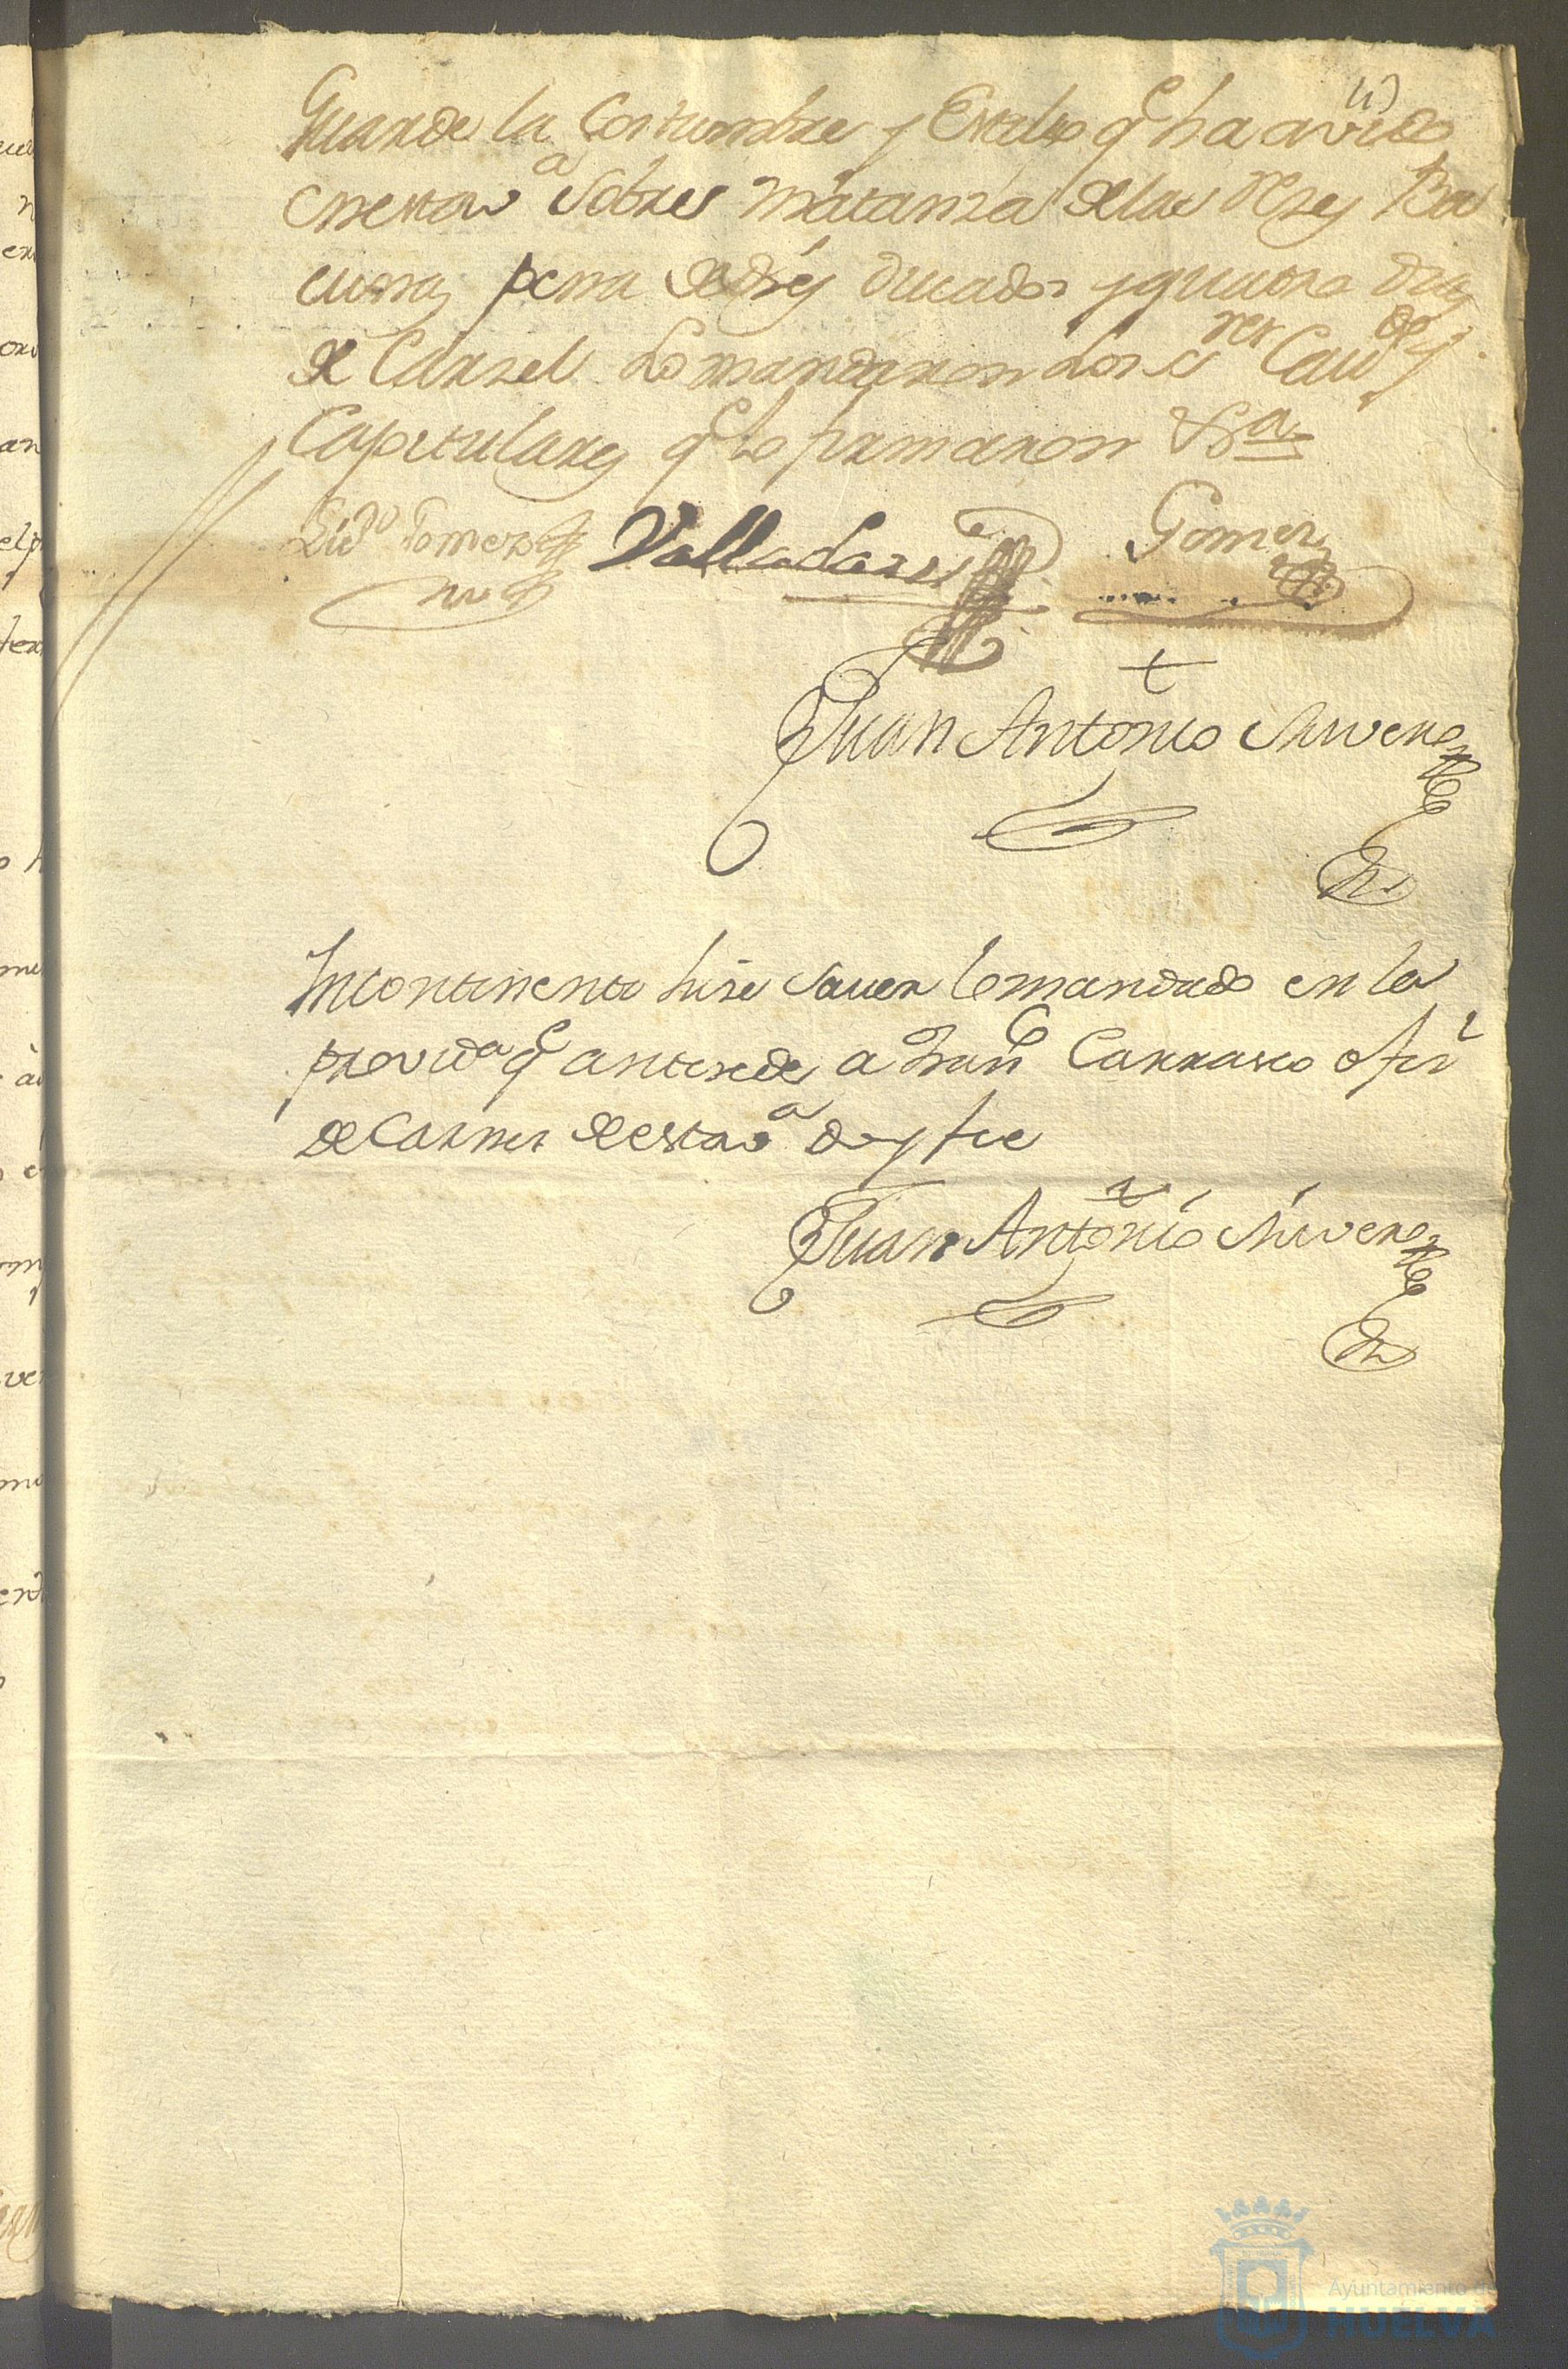 (1)
Guarde la Costumbre y Estilo q.e ha avido
en esta v.a sobre matanza de las reses Ba
cunas pena de dies ducados y quatro dias
de Carzel Lo mandaron Los ss.res Cau.dos y
Capitulares q.e Lo firmaron
Lizd.o Gomez Valladares Gomez
Juan Antonio Rivero
Incontinenti hize saver lo mandado en la
provid.a q.e antesede a Fran.co Carrasco
de Carnes de esta v.a doy fee
Juan Antonio Rivero
Ayuntamiento de
HUELVA